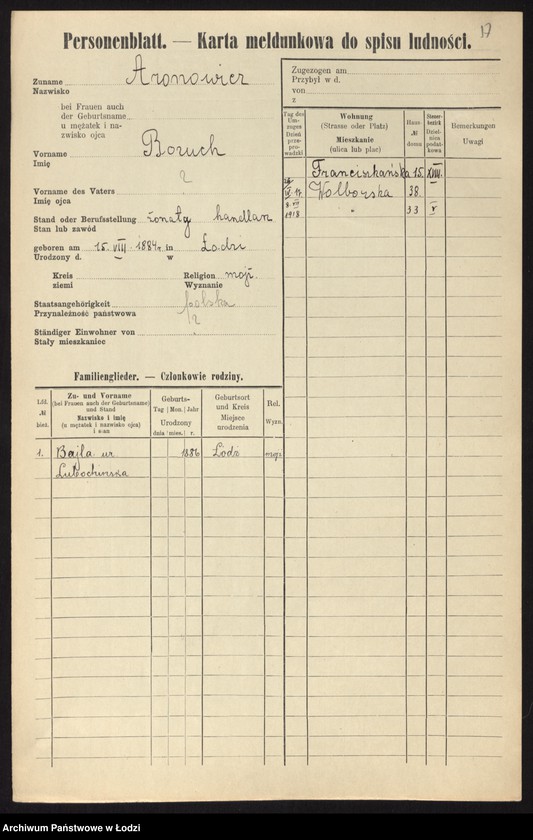 17
Personenblatt. — Karta meldunkowa do spisu ludności.
Zuname Aronowicz
Nazwisko
bei Frauen auch
der Geburtsname
u mężatek i na-
zwisko ojca
Vorname Boruch
Imię
?
Vorname des Vaters
Imię ojca
Stand oder Berufsstellung żonaty handlarz
Stan lub zawód
geboren am 15. VIII 1884 r. in Łodzi
Urodzony d. w
Kreis Religion mojż.
ziemi Wyznanie
Staatsangehörigkeit polska
Przynależność państwowa
?
Ständiger Einwohner von
Stały mieszkaniec
Zugezogen am
Przybył w d.
von
z
Tag des Um-zuges Dzień przepro-wadzki
Wohnung (Strasse oder Platz) Mieszkanie (ulica lub plac)
Haus № domu
Steuer-bezirk Dzielnica podatkowa
Bemerkungen Uwagi
Franciszkańska 15. XIII.
IX 17. Wolborska 38.
8. VII 1918 " 33 V
Familienglieder. — Członkowie rodziny.
Lfd. № bież.
Zu- und Vorname (bei Frauen auch der Geburtsname) und Stand Nazwisko i imię (u mężatek i nazwisko ojca) i stan
Geburts- Tag Mon. Jahr Urodzony dnia mies. r.
Geburtsort und Kreis Miejsce urodzenia
Rel. Wyzn.
1. Bajla ur 1886 Łodz mojż.
Lubochińska
Archiwum Państwowe w Łodzi